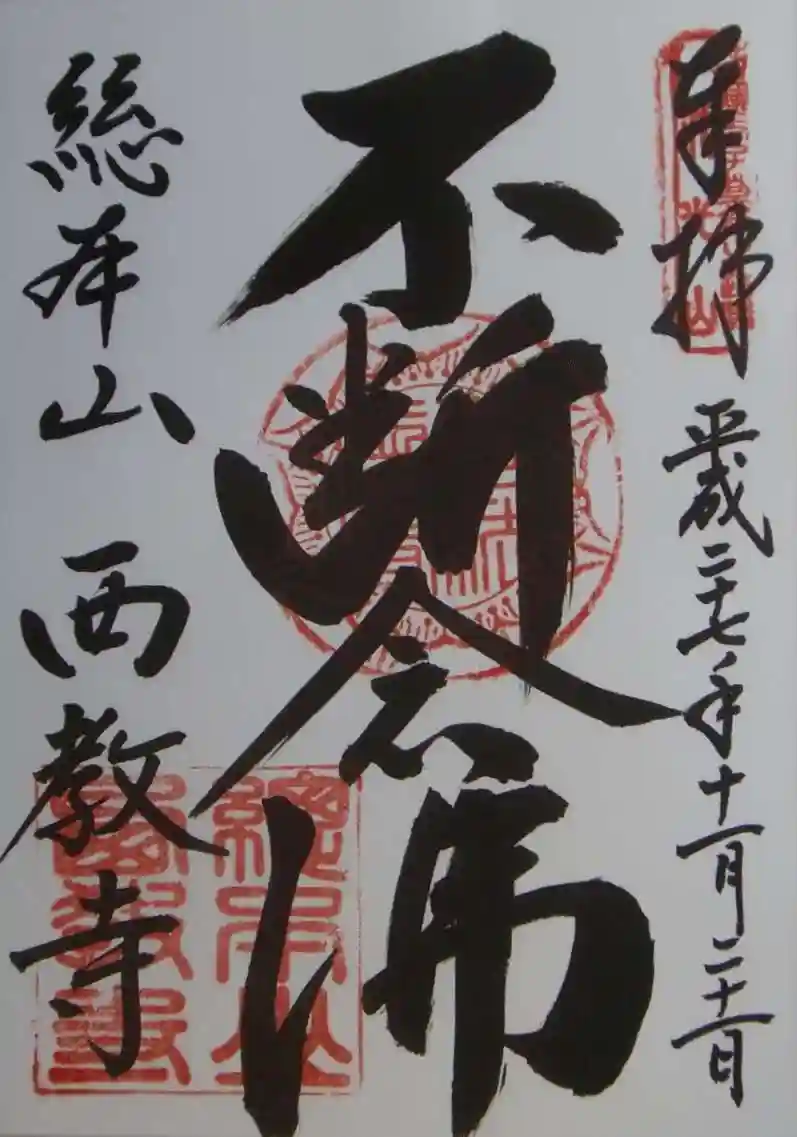 奉拝 平成二十七年十一月二十一日
不断念佛
総本山 西教寺
總本山